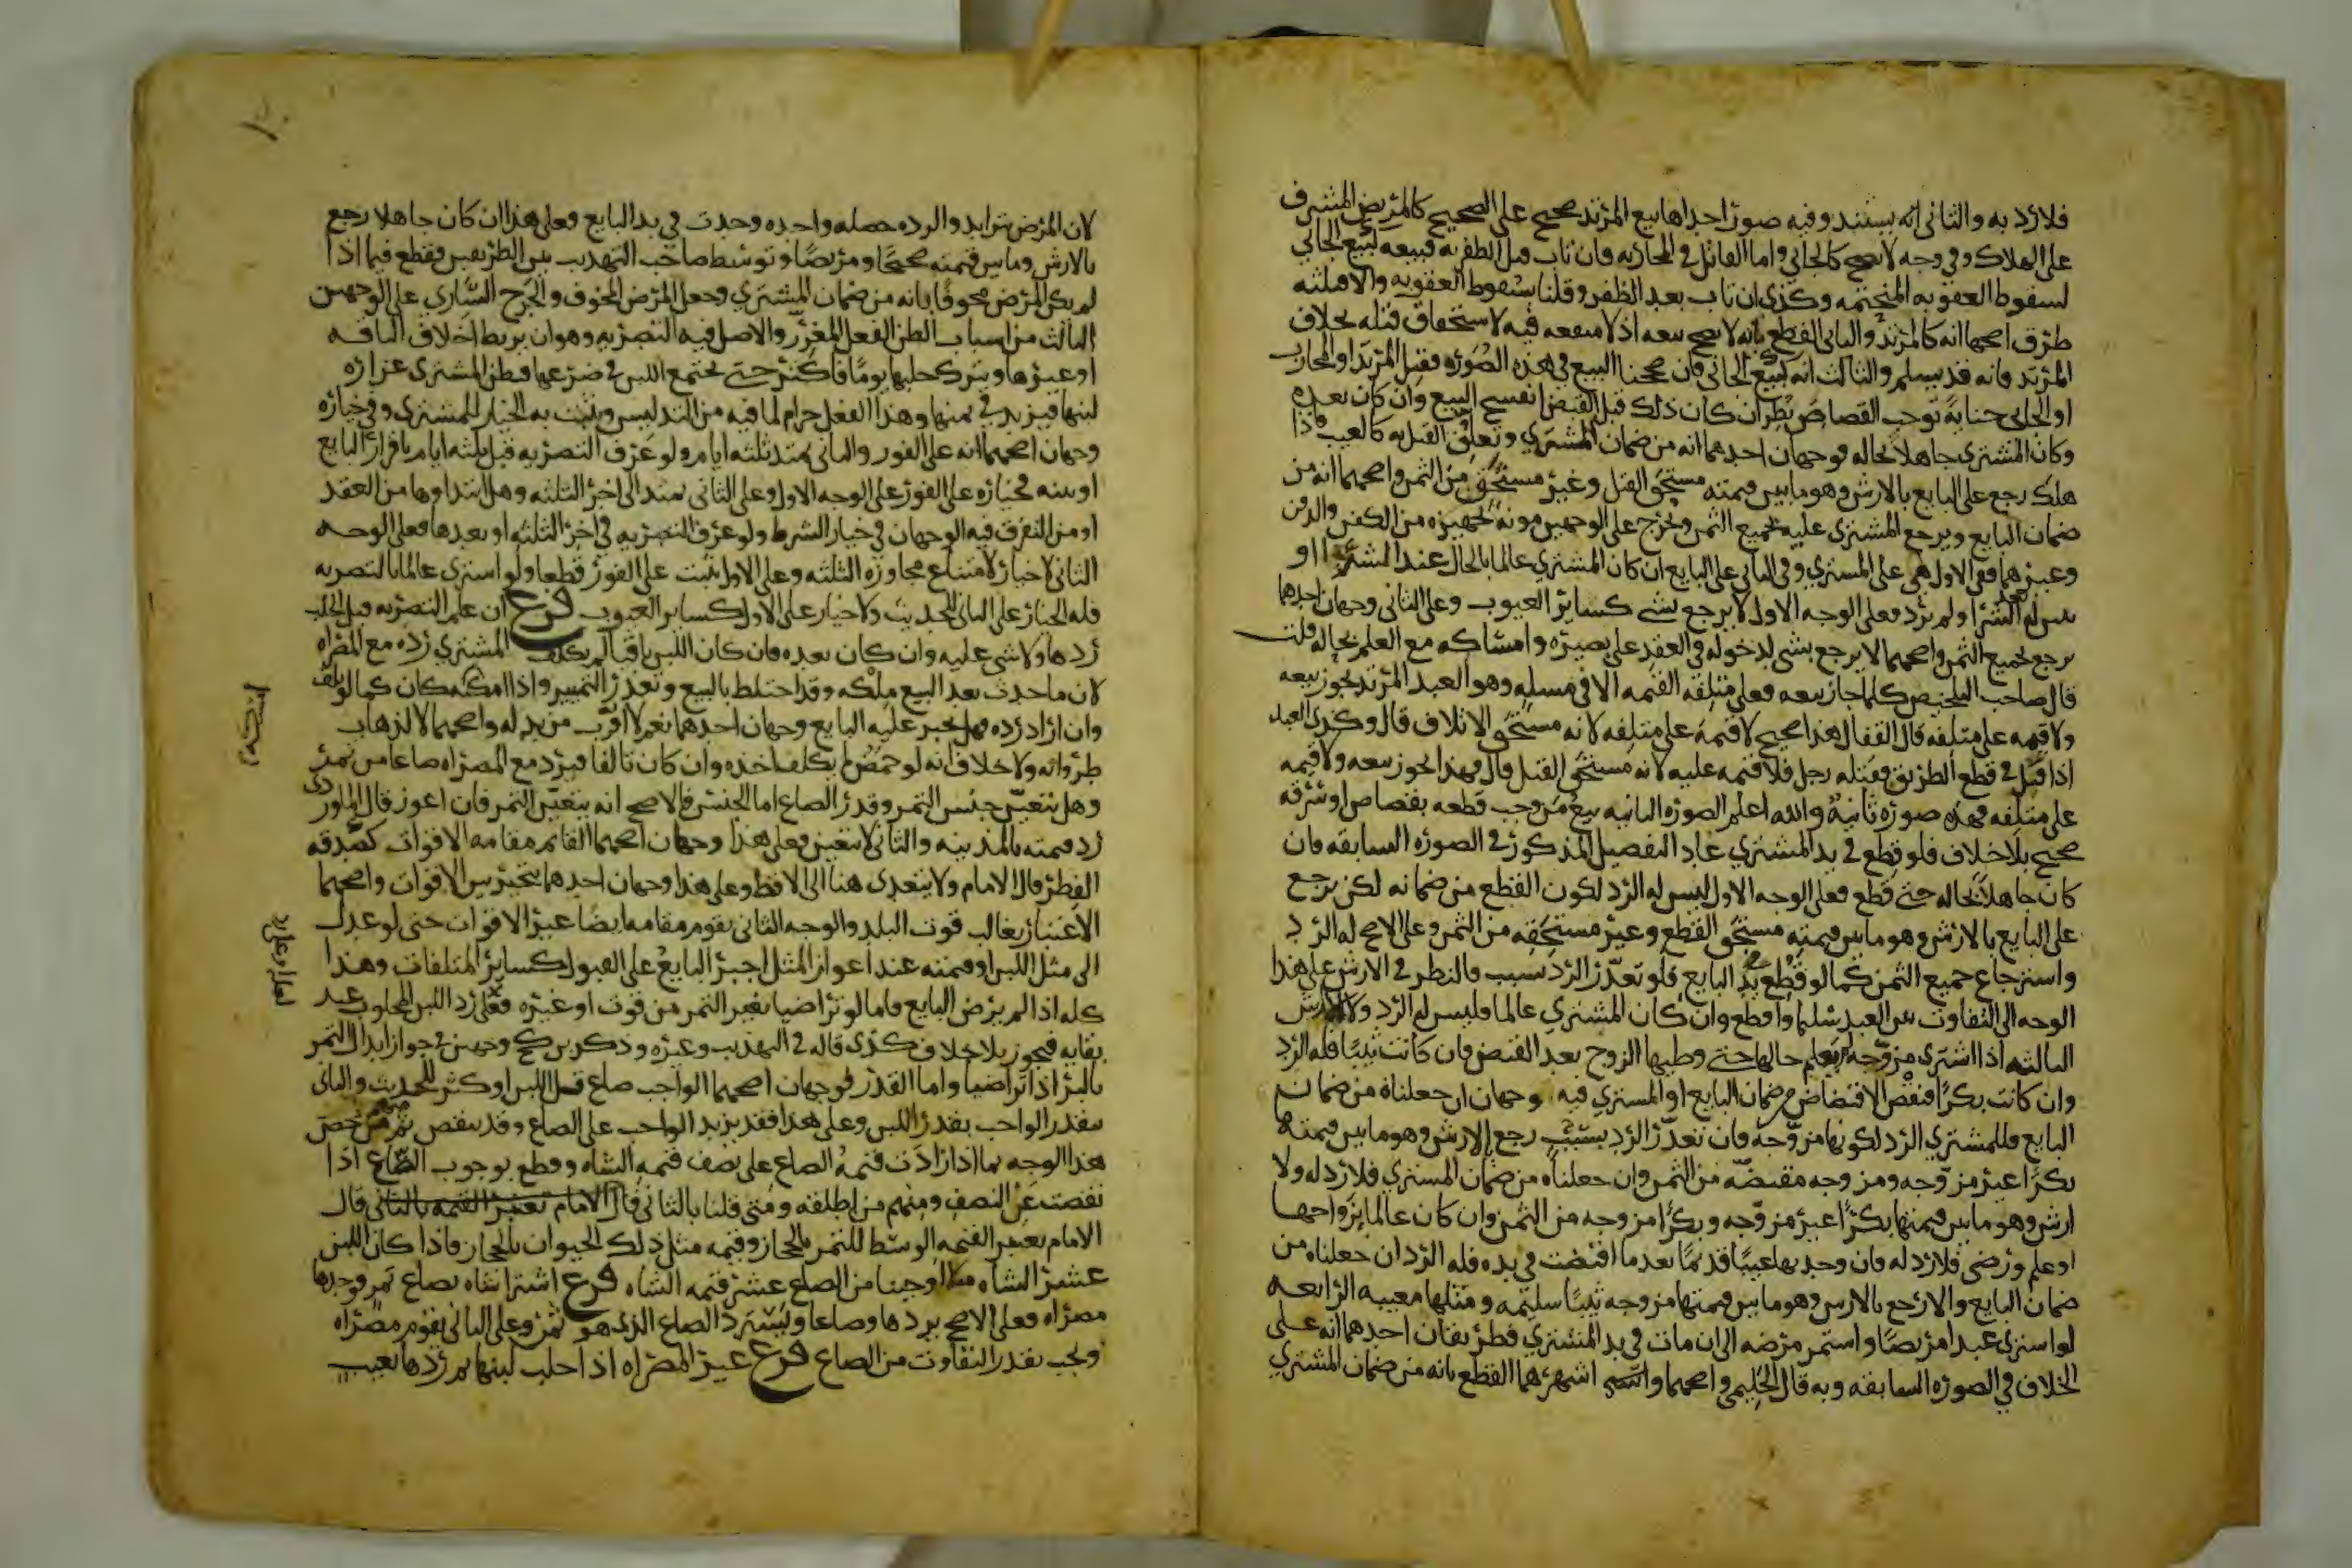 فلا رد به والثاني انه يستند وفيه صور احداها بيع المرتد صحيح على الصحيح كالمريض المشرف
على الهلاك وفي وجه لا يصح كالجاني واما القاتل في المحاربه فان تاب قبل الظفر به فبيعه كبيع الجاني
لسقوط العقوبه المتحتمه وكذى ان تاب بعد الظفر وقلنا بسقوط العقوبه والا فثلثه
طرق اصحها انه كالمرتد والثاني القطع بانه لا يصح بيعه اذ لا منفعه فيه لاستحقاق قتله بخلاف
المرتد فانه قد يسلم والثالث انه كبيع الجاني فان صححنا البيع في هذه الصوره فقتل المرتد او المحارب
او الجاني جنايةً توجب القصاص نُظر ان كان ذلك قبل القبض انفسخ البيع وان كان بعده
وكان المشتري جاهلاً بحاله فوجهان احدهما انه من ضمان المشتري وتعلق القتل به كالعيب فاذا
هلك رجع على البايع بالارش وهو ما بين قيمته مستحق القتل وغير مستحق من الثمن واصحهما انه من
ضمان البايع ويرجع المشتري عليه بجميع الثمن ويخرج على الوجهين مونه تجهيزه من الكفن والدفن
وغيرهما ففي الاول هي على المشتري وفي الثاني على البايع ان كان المشتري عالما بالحال عند الشرا او
تبين له بعد الشرا ولم يرد فعلى الوجه الاول لا يرجع بشي كساير العيوب وعلى الثاني وجهان احدهما
يرجع بجميع الثمن واصحهما لا يرجع بشي لدخوله في العقد على بصيره وامساكه مع العلم بحاله قلت
قال صاحب التلخيص كلما جاز بيعه فعلى متلفه القيمه الا في مسله وهو العبد المرتد يجوز بيعه
ولا قيمه على متلفه قال القفال هذا صحيح لا قيمة على متلفه لانه مستحق الاتلاف قال وكذى العبد
اذا قتل في قطع الطريق فقتله رجل فلا قيمه عليه لانه مستحق القتل قال فهذا يجوز بيعه ولا قيمه
على متلفه فهذه صوره ثانية والله اعلم الصوره الثانيه بيع من وجب قطعه بقصاص او سرقه
صحيح بلا خلاف فلو قطع في يد المشتري عاد التفصيل المذكور في الصوره السابقه فان
كان جاهلاً بحاله حتى قطع فعلى الوجه الاول ليس له الرد لكون القطع من ضمانه لكن يرجع
على البايع بالارش وهو ما بين قيمته مستحق القطع وغير مستحقه من الثمن وعلى الاصح له الرد
واسترجاع جميع الثمن كما لو قطع في يد البايع فلو تعذر الرد بسبب فالنظر في الارش على هذا
الوجه الى التفاوت بين العبد سليما واقطع وان كان المشتري عالما فليس له الرد ولا الارش
الثالثه اذا اشترى مزوجه لم يعلم حالها حتى وطيها الزوج بعد القبض فان كانت ثيبًا فله الرد
وان كانت بكرًا فنقص الاقتضاض من ضمان البايع او المشتري فيه وجهان ان جعلناه من ضمان
البايع فللمشتري الرد لكونها مزوجه فان تعذر الرد بسبب رجع بالارش وهو ما بين قيمتها
بكرًا غير مزوجه ومزوجه مقتضه من الثمن وان جعلناه من ضمان المشتري فلا رد له ولا
ارش وهو ما بين قيمتها بكرًا غير مزوجه وبكرًا مزوجه من الثمن وان كان عالما بزواجها
او علم ورضى فلا رد له فان وجد بها عيبًا قديمًا بعد ما اقتضت في يده فله الرد ان جعلناه من
ضمان البايع والا رجع بالارش وهو ما بين قيمتها مزوجه ثيبًا سليمه ومثلها معيبه الرابعه
لو اشترى عبدا مريضًا واستمر مرضه الى ان مات في يد المشتري فطريقان احدهما انه على
الخلاف في الصوره السابقه وبه قال الحليمي واصحهما واشهرهما القطع بانه من ضمان المشتري
لان المرض تزايد والرده خصله واحده وجدت في يد البايع فعلى هذا ان كان جاهلا رجع
بالارش وما بين قيمته صحيحًا ومريضًا وتوسط صاحب التهذيب بين الطريقين فقطع فيما اذا
لم يكن المرض مخوفًا بانه من ضمان المشتري وجعل المرض المخوف والجرح الساري على الوجهين
الثالث من اسباب الظن الفعل المغرر والاصل فيه التصريه وهو ان يربط اخلاف الناقه
او غيرها ويترك حلبها يومًا فاكثر حتى يجتمع اللبن في ضرعها فيظن المشتري غزاره
لبنها فيزيد في ثمنها وهذا الفعل حرام لما فيه من التدليس ويثبت به الخيار للمشتري وفي خياره
وجهان اصحهما انه على الفور والثاني يمتد ثلثه ايام ولو عرف التصريه قبل ثلثه ايام باقرار البايع
او بينه فخياره على الفور على الوجه الاول وعلى الثاني يمتد الى اخر الثلثه وهل ابتداوها من العقد
او من التفرق فيه الوجهان في خيار الشرط ولو عرف التصريه في اخر الثلثه او بعدها فعلى الوجه
الثاني لا خيار لامتناع مجاوزه الثلثه وعلى الاول يثبت على الفور قطعا ولو اشترى عالما بالتصريه
فله الخيار على الثاني للحديث ولا خيار على الاول كساير العيوب فرع ان علم التصريه قبل الحلب
ردها ولا شي عليه وان كان بعده فان كان اللبن باقيا لم يكلف المشتري رده مع المصراه
لان ما حدث بعد البيع ملكه وقد اختلط بالمبيع وتعذر التمييز واذا امسكه كان كما لو تلف
وان اراد رده فهل يجبر عليه البايع وجهان احدهما نعم لانه اقرب من بدله واصحهما لا لذهاب
طراوته ولا خلاف انه لو حمض لم يكلف اخذه وان كان تالفا فيرد مع المصراه صاعا من تمر
وهل يتعين جنس التمر وقدر الصاع اما الجنس فالاصح انه يتعين التمر فان اعوز قال الماوردي
رد قيمته بالمدينه والثاني لا يتعين فعلى هذا وجهان اصحهما القائم مقامه الاقوات كصدقه
الفطر قال الامام ولا يتعدى هنا الى الاقط وعلى هذا وجهان احدهما يتخير بين الاقوات واصحهما
الاعتبار بغالب قوت البلد والوجه الثاني يقوم مقامه ايضًا غير الاقوات حتى لو عدل
الى مثل اللبن او قيمته عند اعواز المثل اجبر البايع على القبول كساير المتلفات وهذا
كله اذا لم يرض البايع فاما لو تراضيا بغير التمر من قوت او غيره فعلى رد اللبن المحلوب عند
بقايه فيجوز بلا خلاف كذى قاله في التهذيب وغيره وذكر بن كج وجهين في جواز ابدال التمر
بالبر اذا تراضيا واما القدر فوجهان اصحهما الواجب صاع قل اللبن او كثر للحديث والثاني
يتقدر الواجب بقدر اللبن وعلى هذا فقد يزيد الواجب على الصاع وقد ينقص ثم منهم من خص
هذا الوجه بما اذا زادت قيمة الصاع على نصف قيمه الشاه وقطع بوجوب الصاع اذا
نقصت عن النصف ومنهم من اطلقه ومتى قلنا بالثاني قال الامام تعتبر القيمه بالثاني قال
الامام يعتبر القيمه الوسط للتمر بالحجاز وقيمه مثل ذلك الحيوان بالحجاز فاذا كان اللبن
عشر الشاه مثلا اوجبنا من الصاع عشر قيمه الشاه فرع اشترا شاه بصاع تمر فوجدها
مصراه فعلى الاصح يردها وصاعا ويسترد الصاع الذي هو ثمن وعلى الثاني يقوم مصراه
ويجب بقدر التفاوت من الصاع فرع غير المصراه اذا حلب لبنها ثم ردها بعيب